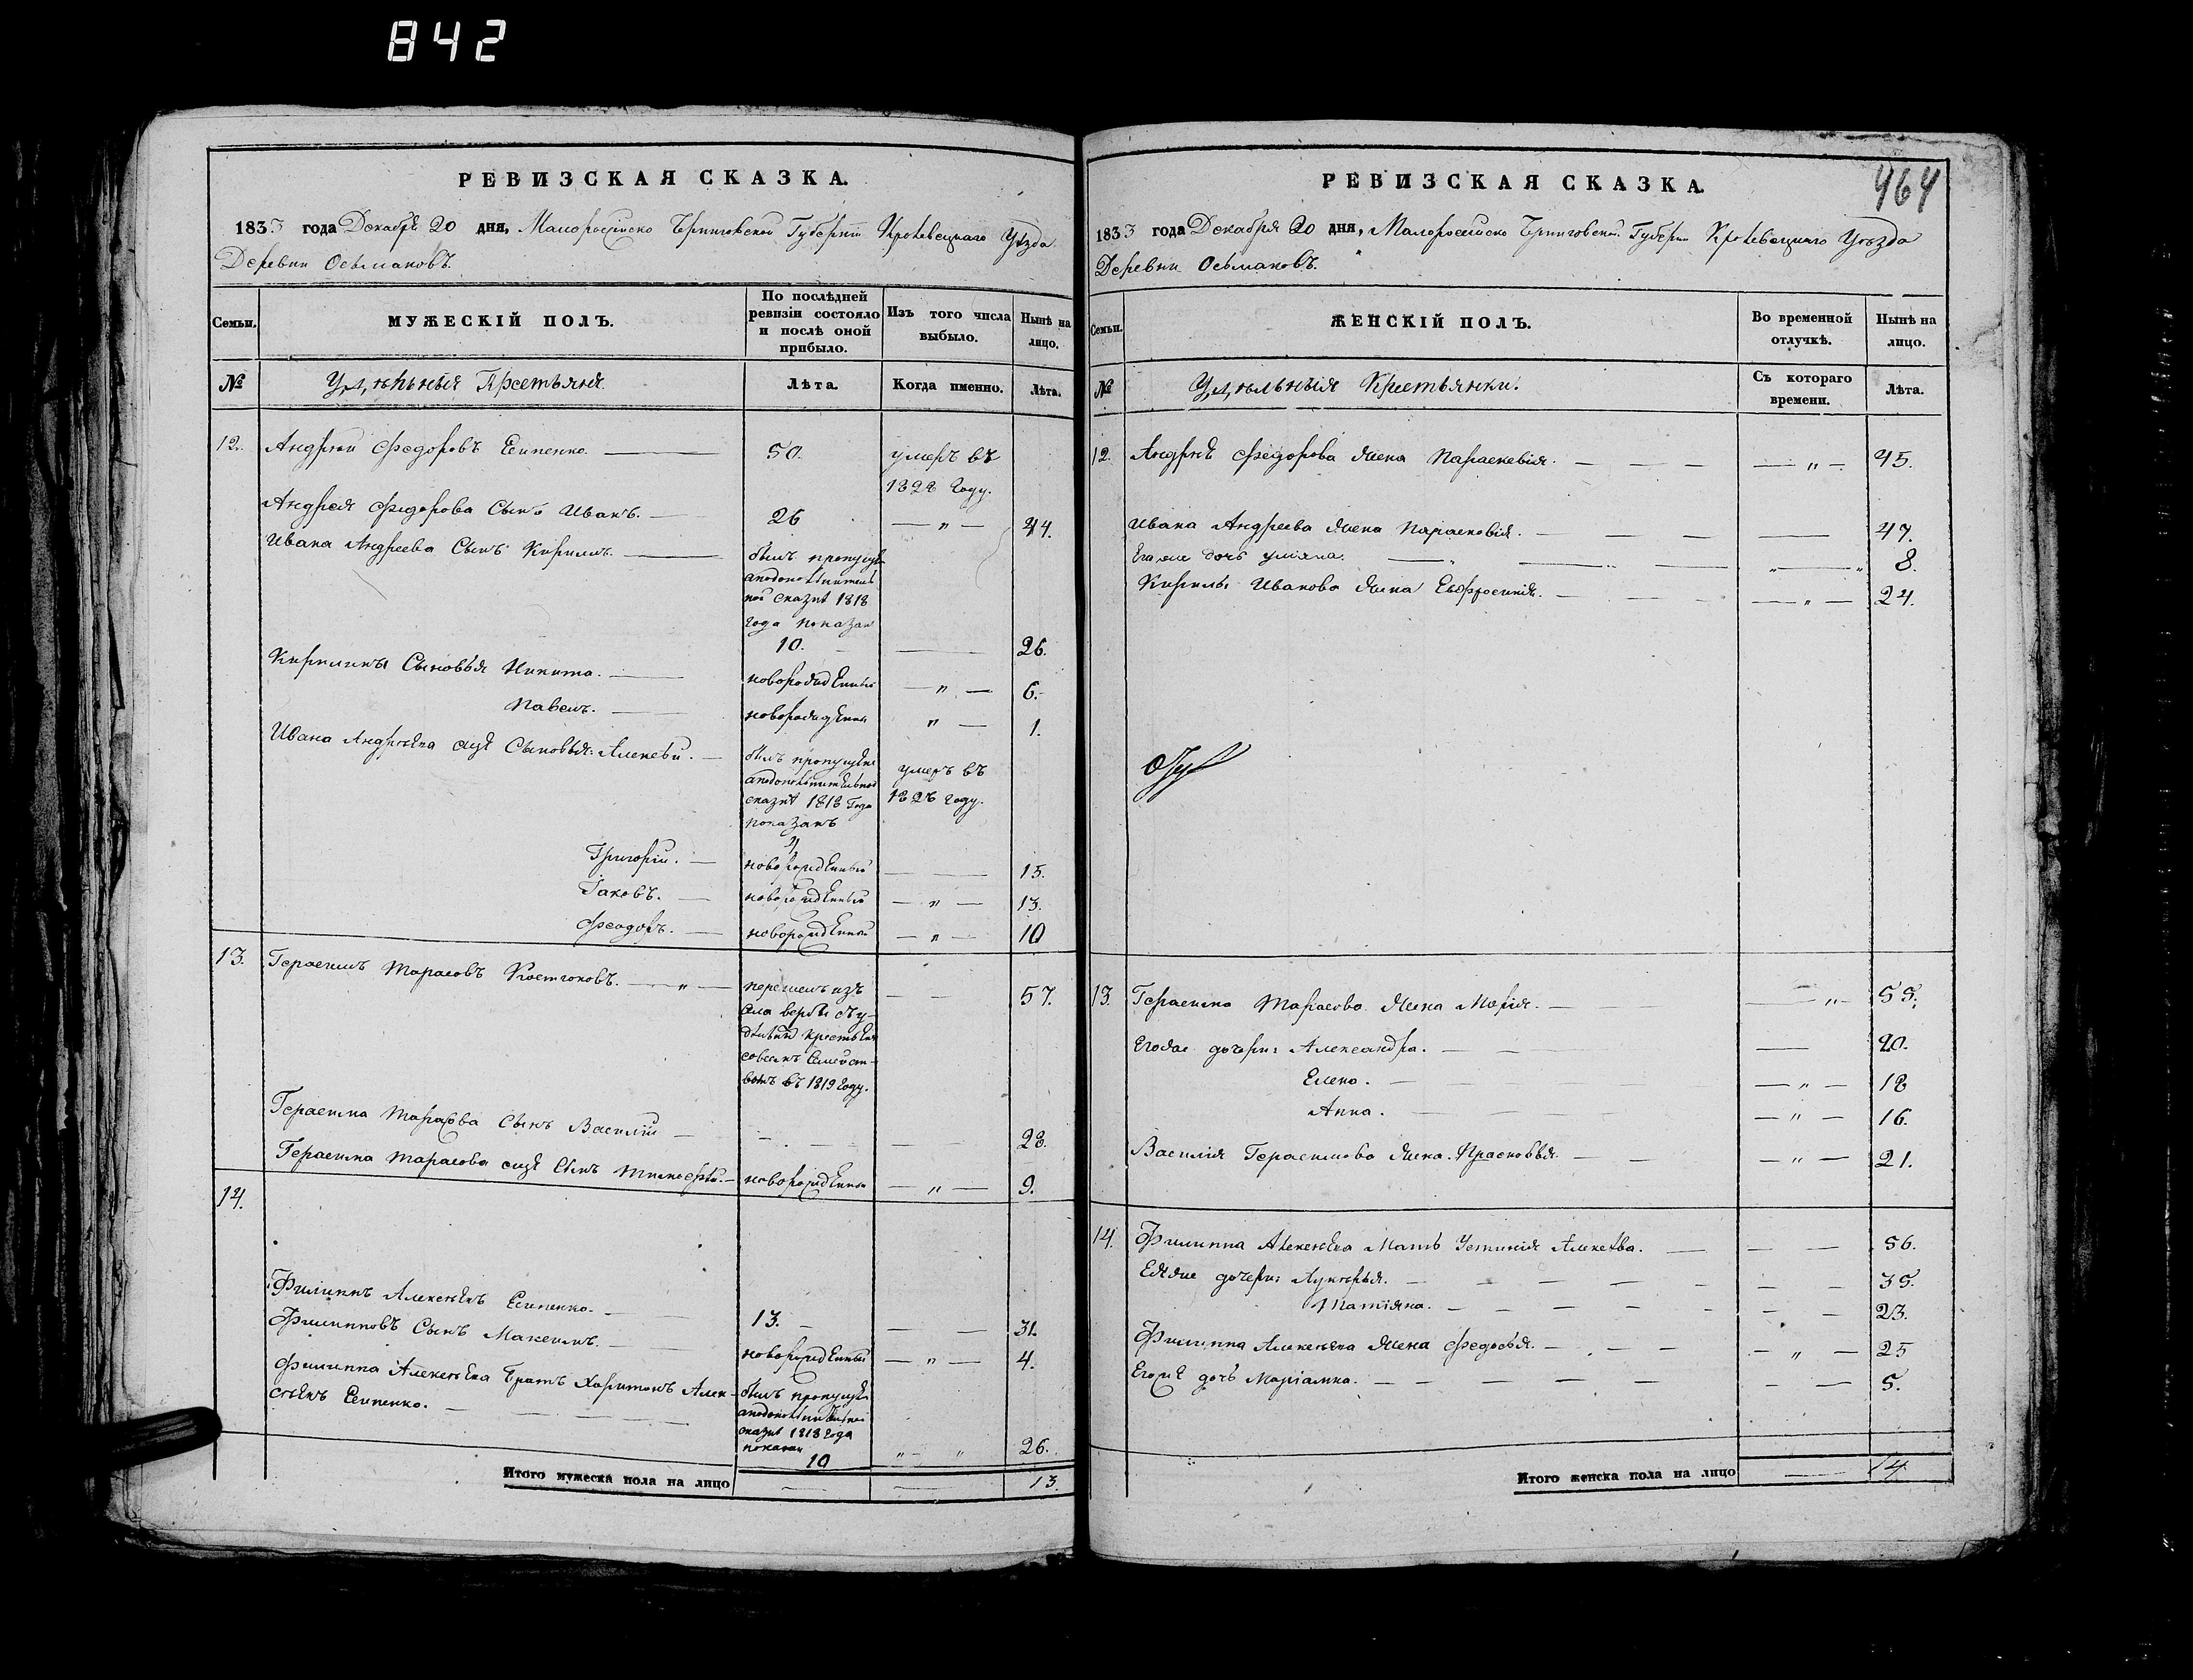 842
РЕВИЗСКАЯ СКАЗКА.
1833 года Декабря 20 дня, Малоросійско Черниговской Губерніи Кролевецкаго Уѣзда
Деревни Осьмаковъ.
Семьи. МУЖЕСКІЙ ПОЛЪ. По послѣдней ревизіи состояло и послѣ оной прибыло. Изъ того числа выбыло. Нынѣ на лицо.
№ Удѣльныя Крестьяня Лѣта. Когда именно. Лѣта.
12. Андрей Федоровъ Есипенко. 50. умеръ въ
1828 Году.
Андрея Федорова Сынъ Иванъ. 26 — „ — 44.
Ивана Андреева Сынъ Кирилъ. былъ пропущен
а по дополнитель
ной сказкѣ 1818
года показан
10. 26.
Кирилины Сыновья Никита. новорожденный — „ — 6.
Павелъ. новорожденный „ — 1.
Ивана Андреева еще Сыновья: Алексѣй. былъ пропущен умеръ въ
а по дополнительной
сказкѣ 1818 Года 1826 Году.
показанъ
4
Григорій. новорожденный 15.
Іаковъ. новорожденный — „ — 13.
Феодоръ. новорожденный — „ — 10
13. Герасимъ Тарасовъ Костюковъ. — „ — перешелъ изъ 57.
села Вербы съ у-
дѣльных крестьян
совсемъ Семейст-
вомъ въ 1819 Году.
Герасима Тарасова Сынъ Василій 28.
Герасима Тарасова еще Сынъ Тимофей. новорожденный — „ — 9.
14.
Филиппъ Алексѣевъ Есипенко. 13. 31.
Филипповъ Сынъ Максимъ. новорожденный — „ — 4.
Филиппа Алексѣева Братъ Харитонъ Алек- былъ пропущен
сѣевъ Есипенко. а по дополнительной
сказкѣ 1818 Года
показан
10 „ — „ 26.
Итого мужеска пола на лицо 13.
464
РЕВИЗСКАЯ СКАЗКА.
1833 года Декабря 20 дня, Малоросійско Черниговской Губерніи Кролевецкаго Уѣзда
Деревни Осьмаковъ.
Семьи. ЖЕНСКІЙ ПОЛЪ. Во временной отлучкѣ. Нынѣ на лицо.
№ Удѣльныія Крестьянки. Съ котораго времени. Лѣта.
12. Андрея Федорова Жена Параскевія. — „ — 45.
Ивана Андреева Жена Парасковія. 47.
Его же дочь Уліяна. „ — „ 8.
Кирилы Иванова Жена Евфросинія. — „ — 24.
13. Герасима Тарасова Жена Марія. — „ — 55.
Егоже дочери: Александра. 20.
Елена. — „ — 18
Анна. — „ — 16.
Василія Герасимова Жена Прасковья. — „ — 21.
14. Филиппа Алексѣева Мать Устинія Алексѣева. 56.
Еяже дочери: Лукерья. 35.
Татіяна. 23.
Филиппа Алексѣева Жена Федосья. — „ — 25
Егоже дочь Маріамна. 5.
Итого женска пола на лицо 14.